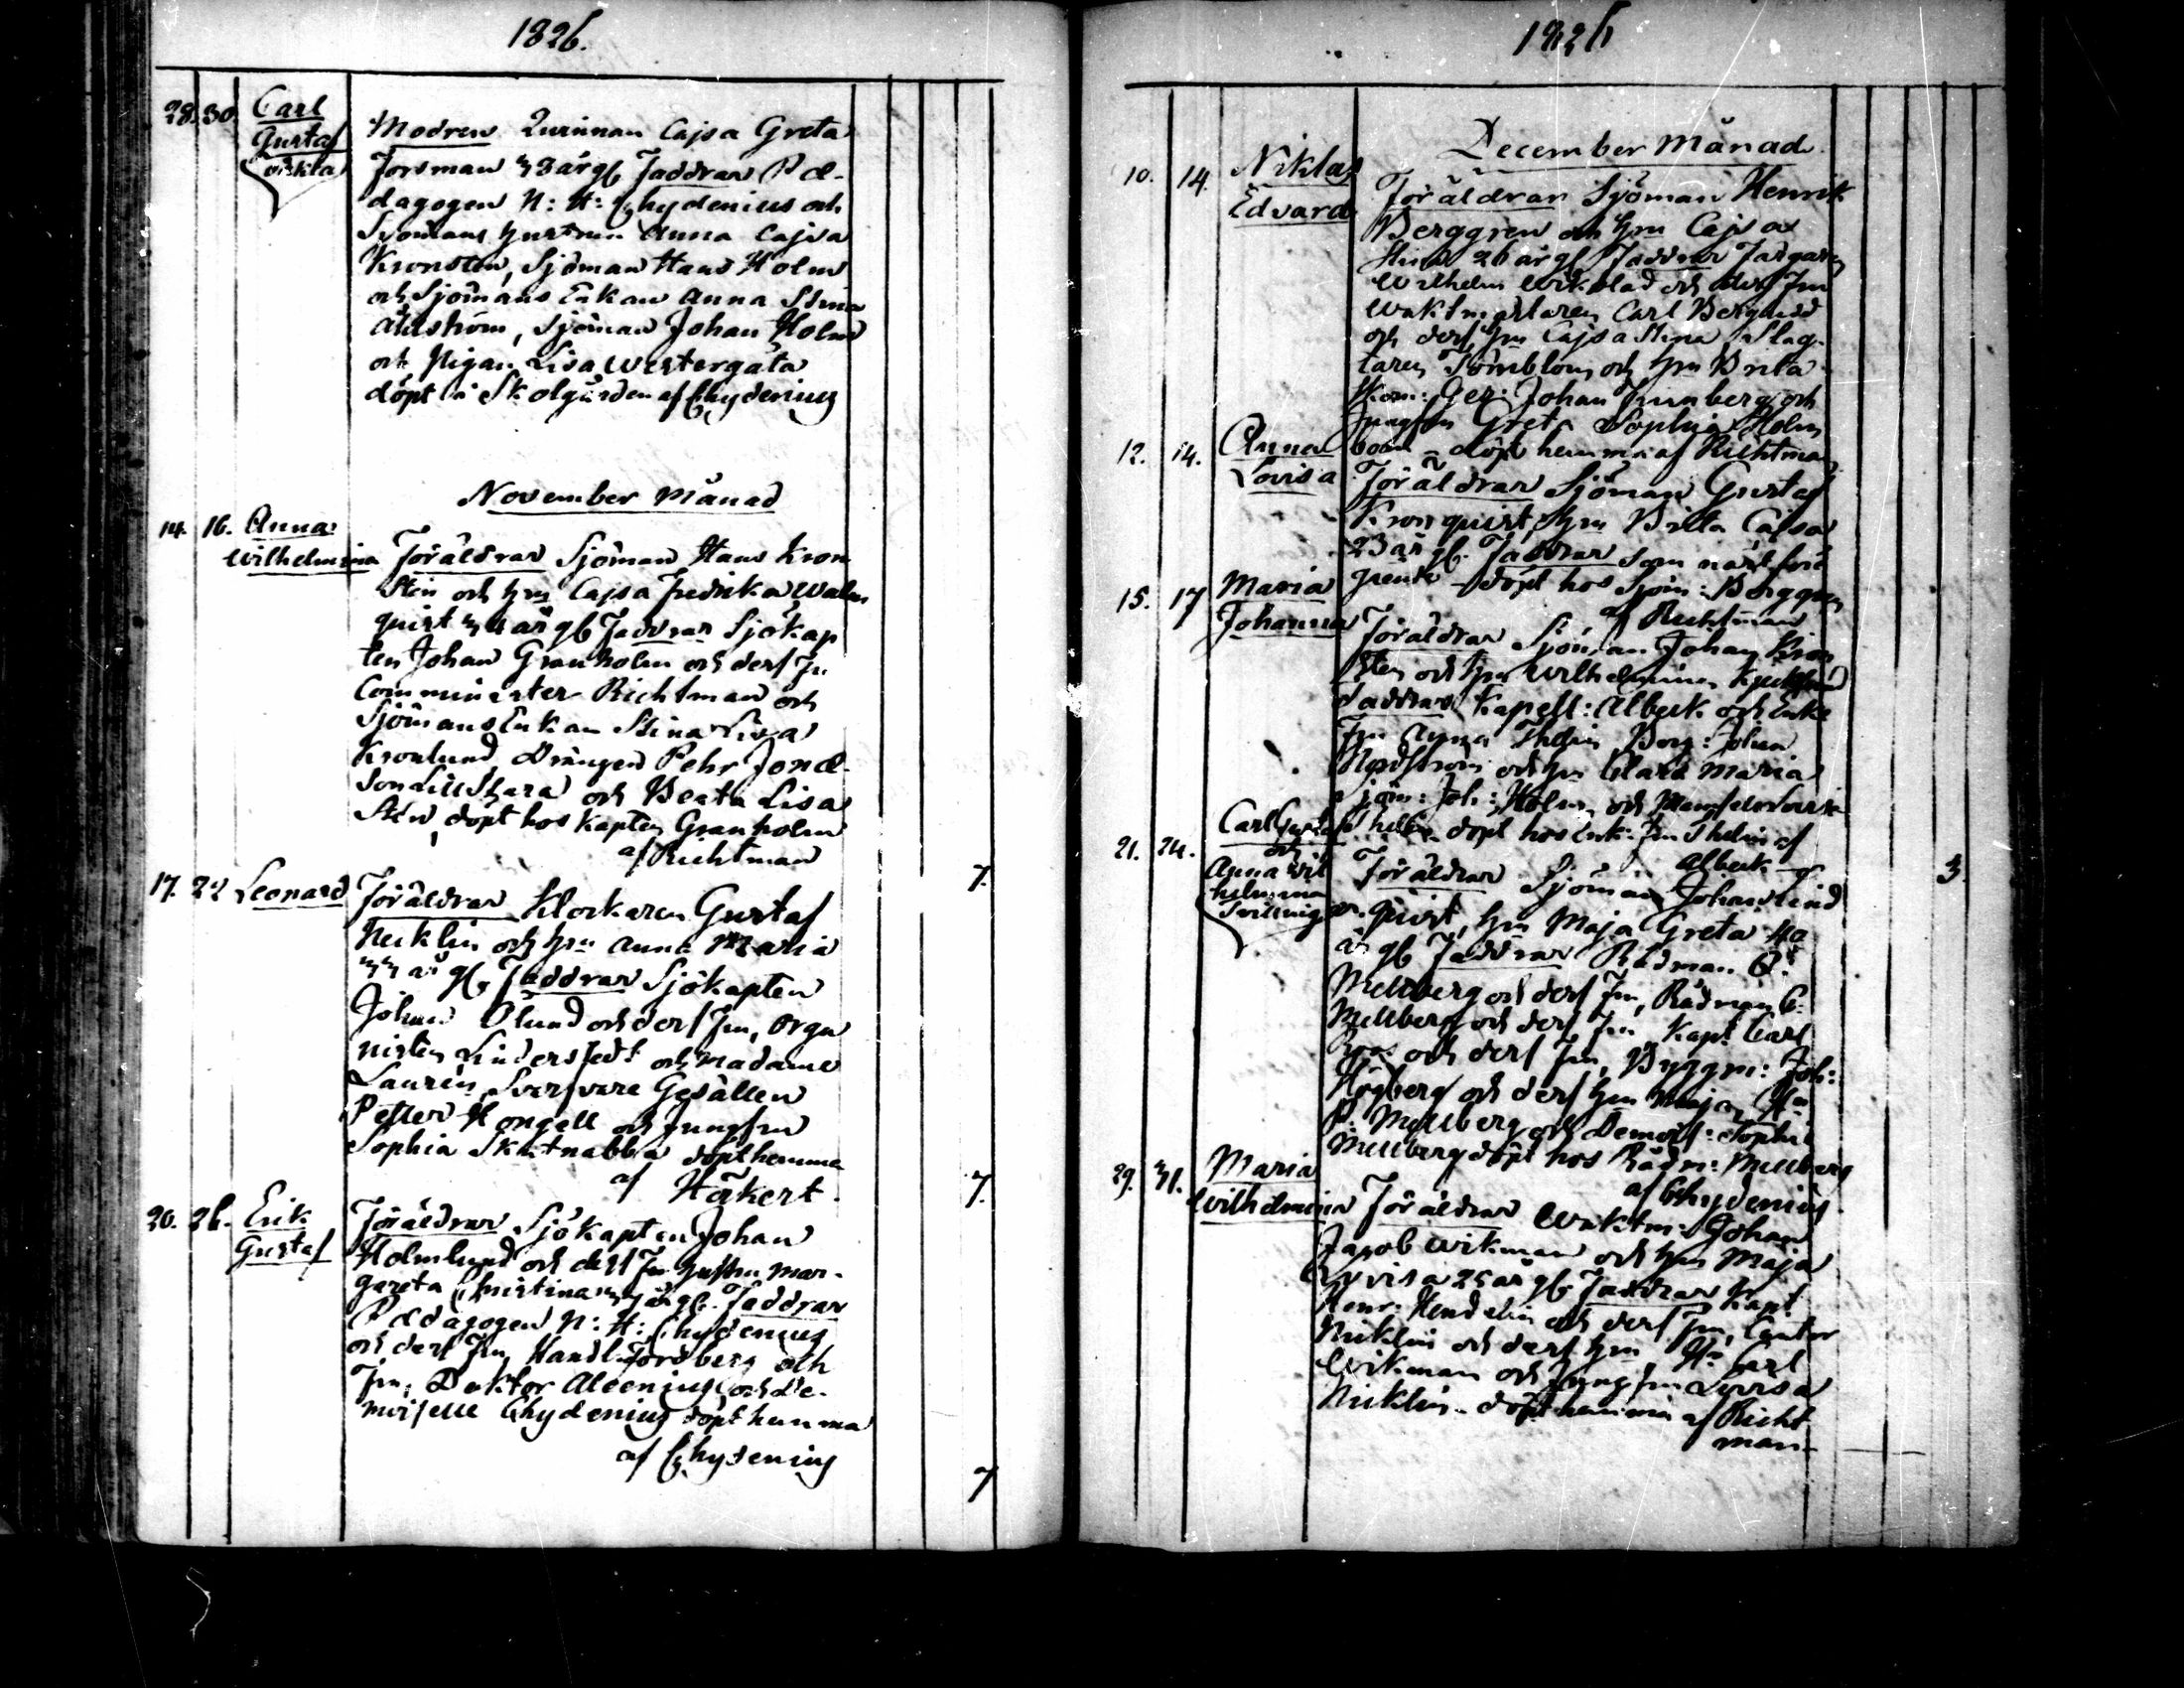 1826.
28. 30. Carl
Gustaf
oäkta
Modren Qvinnan Cajsa Greta
Forsman 33 år gl. Faddrar Pæ-
dagogen N: H: Chydenius och
Sjömans hustrun Anna Cajsa
Kronsten, Sjöman Hans Holm
och Sjömans Enkan Anna Stina
Åhlström, Sjöman Johan Holm
och Pigan Lisa Westergåta
döpt i Skolgården af Chydenius
November Månad
14. 16. Anna
Wilhelmina
Föräldrar Sjöman Hans Kron
sten och hru Cajsa Fredrika Walm
quist 34 år gl. Faddrar Sjökap
ten Johan Granholm och ders fru
Comminister Richtman och
Sjömans Enkan Stina Lisa
Kronlund, Drängen Pehr Jonæ-
son och Beata Lisa
Sten, döpt hos Kapten Granholm
af Richtman
7.
17. 22 Leonard
Föräldrar Klockaren Gustaf
Necklin och hru Anna Maria
33 år gl. Faddrar Sjökapten
Johan Ölund och ders fru, Orga
nisten Linderstedt och Madame
Laurin, Svarfvare Gesällen
Petter Hongell och jungfru
Sophia Skutnabba döpt hemma
af Hörkert.
7.
20. 26. Erik
Gustaf
Föräldrar Sjökapten Johan
Holmlund och ders hustru Mar-
gareta Christina år gl. Faddrar
Pædagogen N: H: Chydenius
och ders fru, Handl. Fordberg och
fru, Doktor Alcenius och De-
moiselle Chydenius döpt hemma
af Chydenius
7
1826
December Månad
10. 14. Niklas
Edvard
Föräldrar Sjöman Henrik
Berggren och hru Cajsa
Stina 26 år gl. Faddrar Färgaren
Wilhelm Wikblad och ders fru
Waktmästaren Carl Berglund
och ders hru Cajsa Stina Slag-
taren Törnblom och hru Brita
Kom: Ges: Johan och
jungfru Greta Sophia Holm
bom - döpt hemma af Richtman
12. 14. Anna
Lovisa
Föräldrar Sjöman Gustaf
Kronquist, hru Brita Cajsa
23 år gl. Faddrar som näst före
gående - döpt hos Sjöm: Berggren
af Richtman
15. 17 Maria
Johanna
Föräldrar Sjöman Johan Kron
sten och hru Wilhelmina
Faddrar Kapell: Albeck och Enke
fru Anna Thelin, Borg: Johan
Nordström och hru Clara Maria
Sjöm: Joh: Holm och Mamsell Lovisa
Thelin döpt hos Enk: fru Thelin af
Albeck
21. 24. Carl Gustaf
och
Anna Wil
helmina
Tvillingar
3.
Föräldrar Sjöman Johan Lind
quist, hru Maja Greta 40
år gl. Faddrar Rådman
Mellberg och ders fru, Rådman C.
Mellberg och ders fru Kapt Carl
Roos och ders fru, Byggm: Joh:
Högberg och ders hru Maja, Hr
P: Mellberg och Demois: Sophia
Mellberg döpt hos Rådm: Mellberg
af Chydenius
29. 31. Maria
Wilhelmina
Föräldrar Waktm: Johan
Jacob Wikman och hru Maja
Lovisa 25 år gl. Faddrar Kapt
Henr: Hendelin och ders fru, Cantor
Nicklin och ders hru, Hr Carl
Wikman och jungfru Lovisa
Nicklin - döpt hemma af Richt
man-